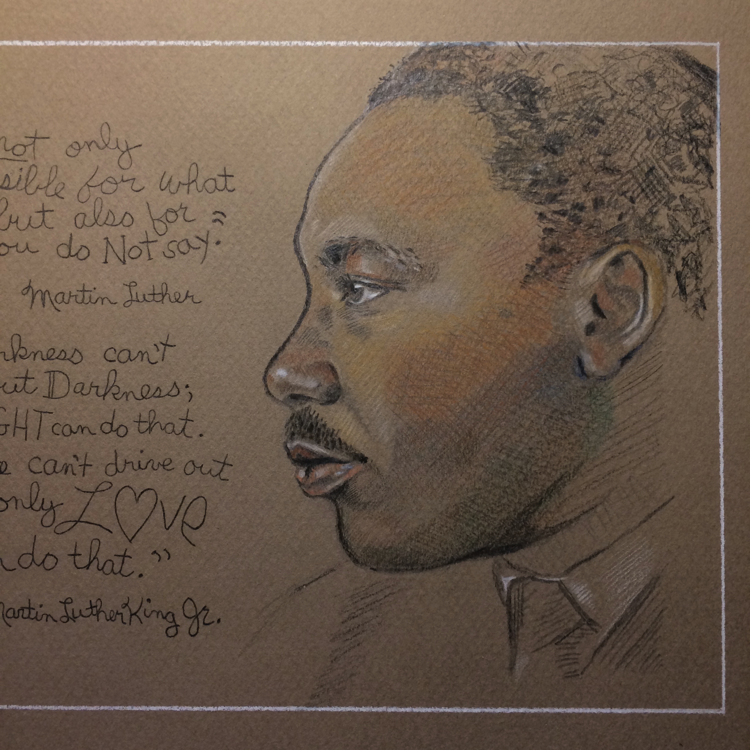 not only
sible for what
but also for
ou do Not say."
Martin Luther
rkness can't
ut Darkness;
GHT can do that.
e can't drive out
only LOVe
n do that."
Martin Luther King Jr.